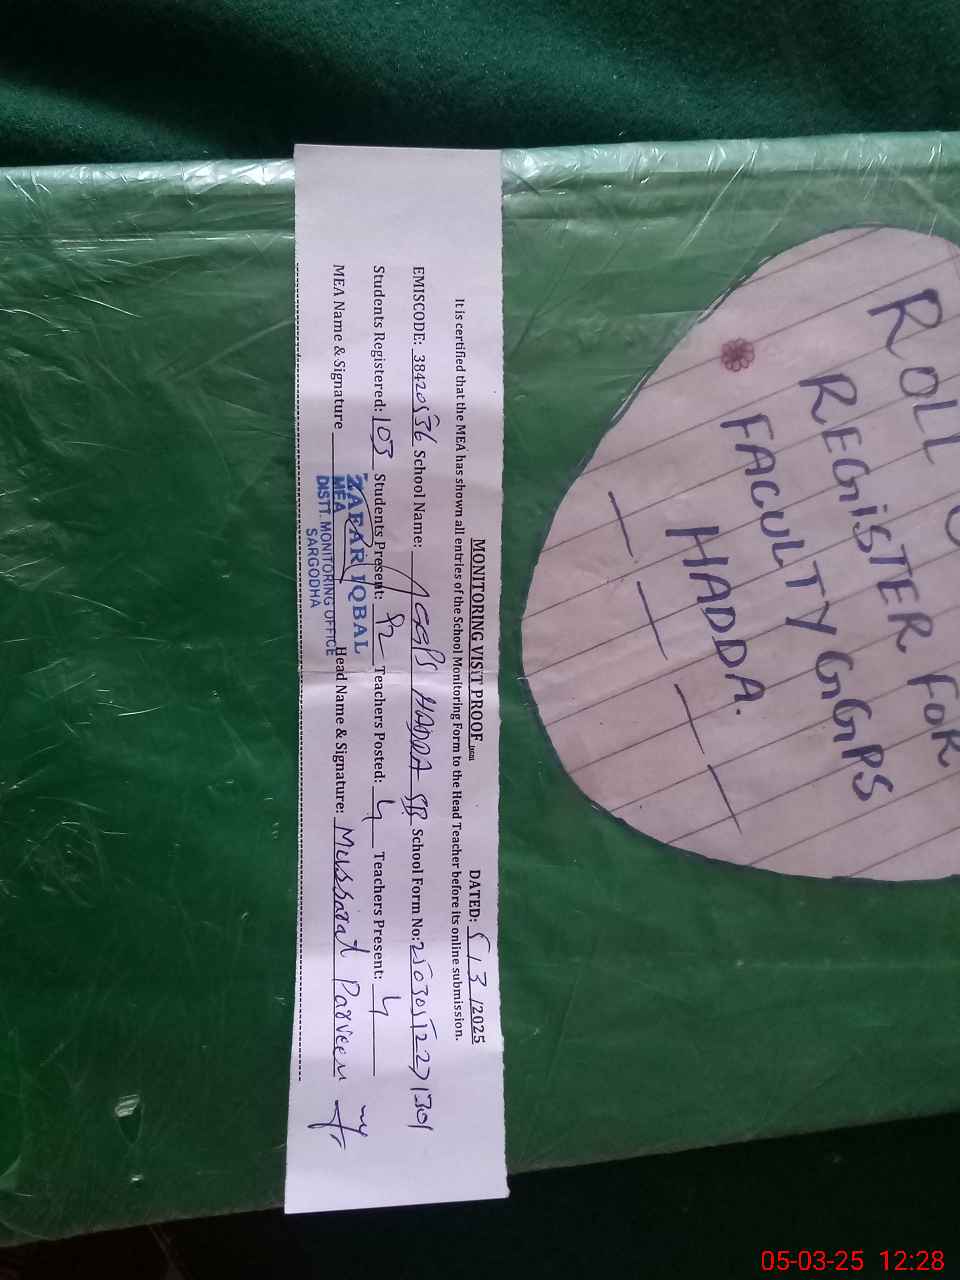 MONITORING VISIT PROOF DATED: 5/3/2025
It is certified that the MEA has shown all entries of the School Monitoring Form to the Head Teacher before its online submission.
EMISCODE: 38420536 School Name: GGPS HADDA SB School Form No:
Students Registered: 103 Students Present: 92 Teachers Posted: 4 Teachers Present: 4
MEA Name & Signature Head Name & Signature: Mussarat Parveen
ZAFAR IQBAL
MEA
DISTT. MONITORING OFFICE
SARGODHA
ROLL
REGiSTER FOR
FACULTY GGPS
HADDA.
05-03-25 12:28